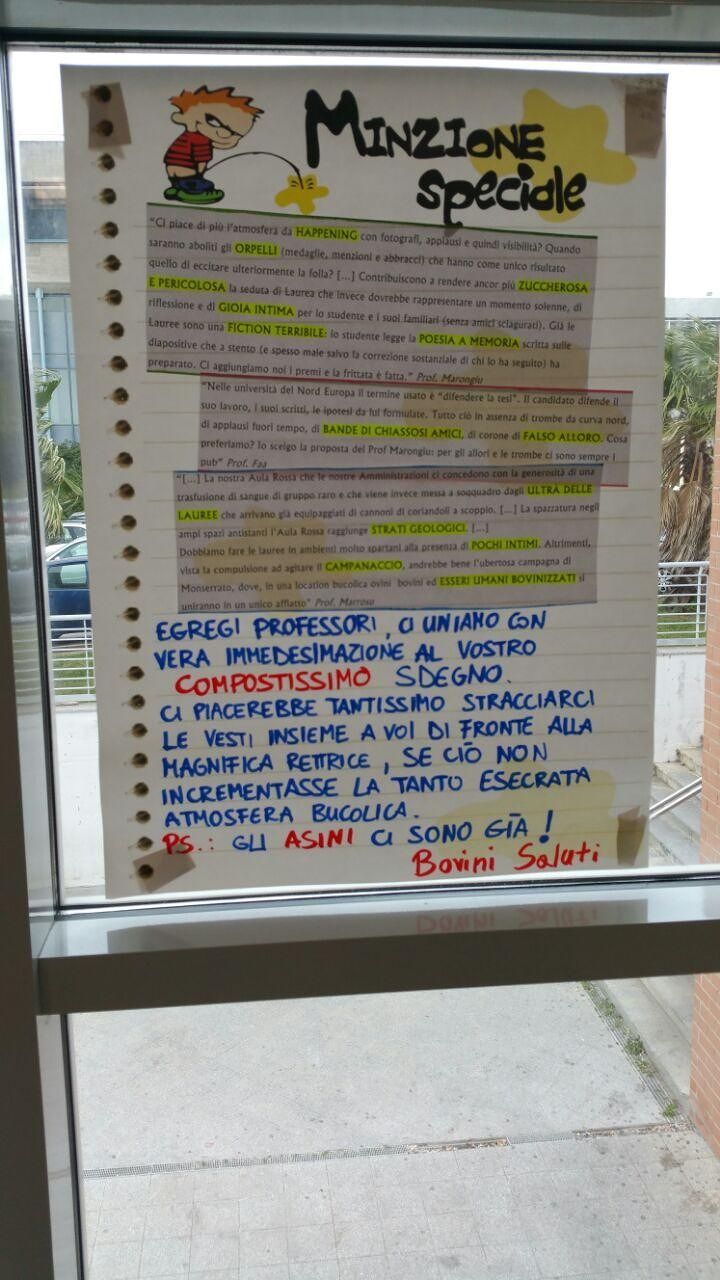 MINZIONE
speciale
"Ci piace di più l'atmosfera da HAPPENING con fotografi, applausi e quindi visibilità? Quando
saranno aboliti gli ORPELLI (medaglie, menzioni e abbracci) che hanno come unico risultato
quello di eccitare ulteriormente la folla? [...] Contribuiscono a rendere ancor più ZUCCHEROSA
E PERICOLOSA la seduta di Laurea che invece dovrebbe rappresentare un momento solenne, di
riflessione e di GIOIA INTIMA per lo studente e i suoi familiari (senza amici sciagurati). Già le
Lauree sono una FICTION TERRIBILE: lo studente legge la POESIA A MEMORIA scritta sulle
diapositive che a stento (e spesso male salvo la correzione sostanziale di chi lo ha seguito) ha
preparato. Ci aggiungiamo noi i premi e la frittata è fatta." Prof. Marongiu
"Nelle università del Nord Europa il termine usato è "difendere la tesi". Il candidato difende il
suo lavoro, i suoi scritti, le ipotesi da lui formulate. Tutto ciò in assenza di trombe da curva nord,
di applausi fuori tempo, di BANDE DI CHIASSOSI AMICI, di corone di FALSO ALLORO. Cosa
preferiamo? Io scelgo la proposta del Prof Marongiu: per gli allori e le trombe ci sono sempre i
pub" Prof. Faa
"[...] La nostra Aula Rossa che le nostre Amministrazioni ci concedono con la generosità di una
trasfusione di sangue di gruppo raro e che viene invece messa a soqquadro dagli ULTRA DELLE
LAUREE che arrivano già equipaggiati di cannoni di coriandoli a scoppio. [...] La spazzatura negli
ampi spazi antistanti l'Aula Rossa raggiunge STRATI GEOLOGICI. [...]
Dobbiamo fare le lauree in ambienti molto spartani alla presenza di POCHI INTIMI. Altrimenti,
vista la compulsione ad agitare il CAMPANACCIO, andrebbe bene l'ubertosa campagna di
Monserrato, dove, in una location bucolica ovini bovini ed ESSERI UMANI BOVINIZZATI si
uniranno in un unico afflato" Prof. Marrosu
EGREGI PROFESSORI, CI UNIAMO CON
VERA IMMEDESIMAZIONE AL VOSTRO
COMPOSTISSIMO SDEGNO.
CI PIACEREBBE TANTISSIMO STRACCIARCI
LE VESTI INSIEME A VOI DI FRONTE ALLA
MAGNIFICA RETTRICE, SE CIÒ NON
INCREMENTASSE LA TANTO ESECRATA
ATMOSFERA BUCOLICA.
PS.: GLI ASINI CI SONO GIÀ!
Bovini Saluti